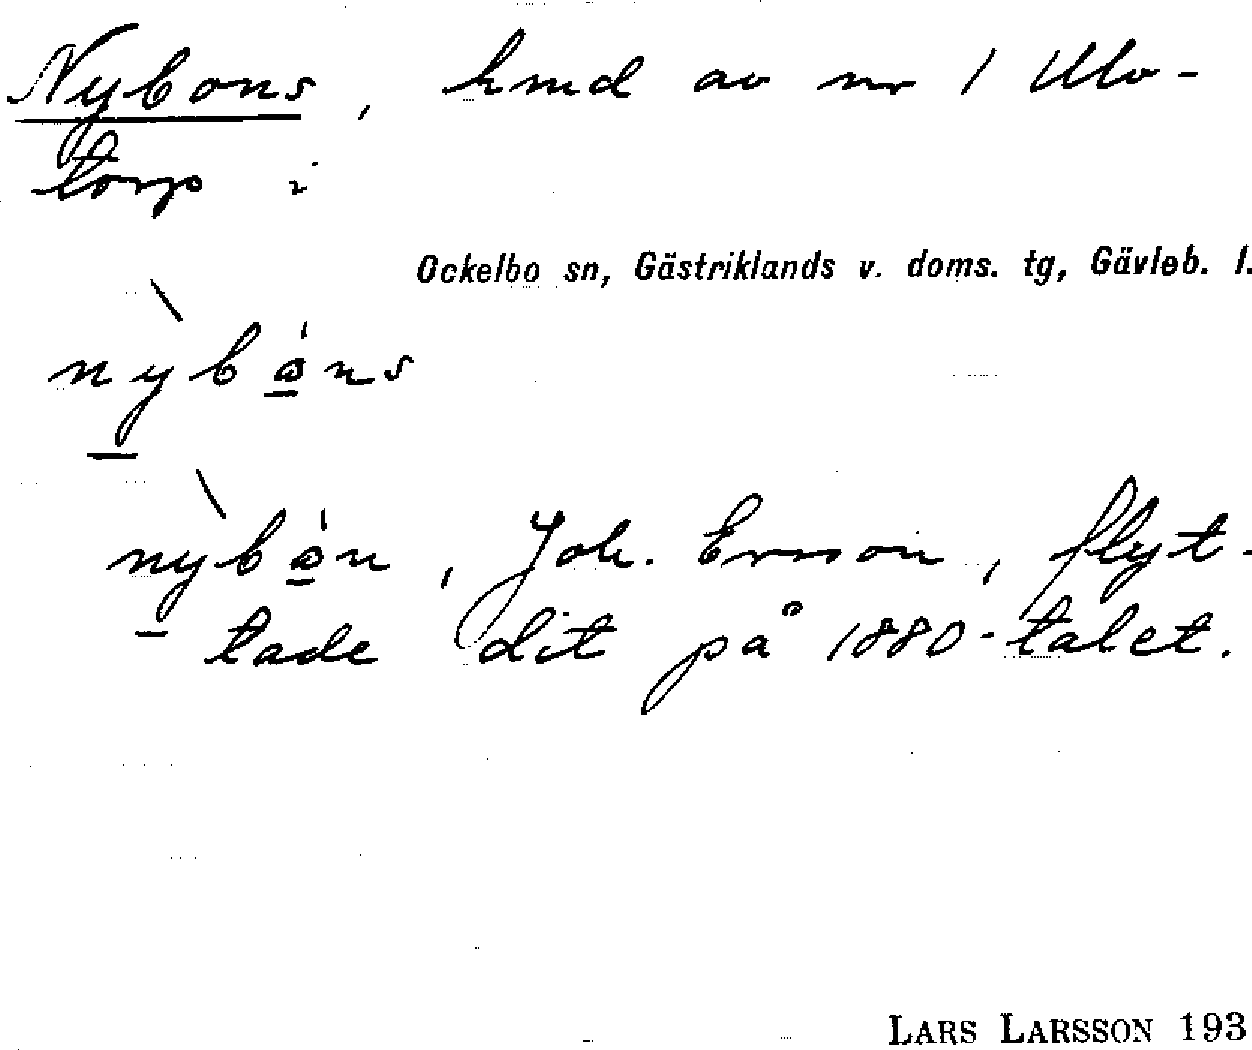 Nybons, hmd av nr 1 Ulv-
torp i
Ockelbo sn, Gästriklands v. doms. tg, Gävleb. l.
nỳbȧns
nỳbȧn, Joh. Ersson, flyt-
tade dit på 1880-talet.
LARS LARSSON 193